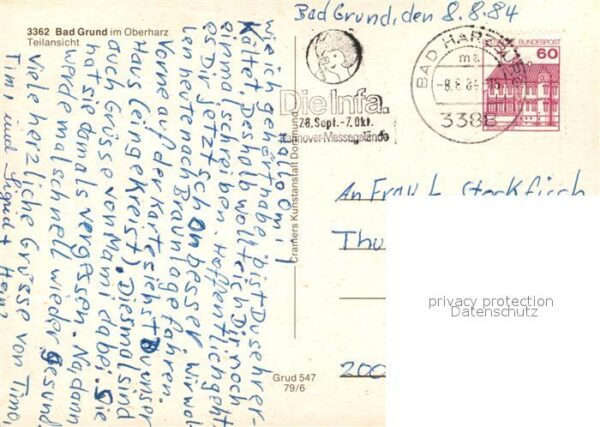 3362 Bad Grund im Oberharz
Teilansicht
Bad Grund, den 8.8.84
Hallo Omi,
wie ich gehört habe, bist Du sehr er-
kältet. Deshalb wollte ich Dir noch
einmal schreiben. Hoffentlich geht
es Dir jetzt schon besser. Wir wol-
len heute nach Braunlage fahren.
Vorne auf der Karte siehst Du unser
Haus (eingekreist). Diesmal sind
auch Grüsse von Mami dabei. Sie
hat sie damals vergessen. Na, dann
werde mal schnell wieder gesund.
Viele herzliche Grüsse von Timo,
Timi und Sigrid + Heinz
Cramers Kunstanstalt Dortmund
Grud 547
79/6
Die Infa.
28. Sept. - 7. Okt.
Hannover-Messegelände
BAD HARZBURG
ma
-8.8.84-15
3388
DEUTSCHE BUNDESPOST
60
An Frau L. Stockfisch
Thu
200
privacy protection
Datenschutz